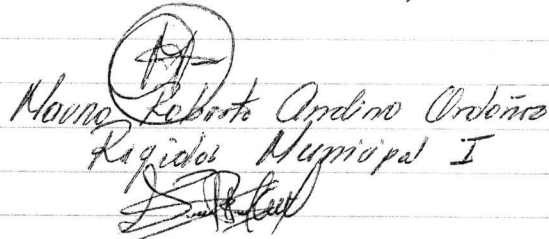 Mauro Roberto Andino Ordoñez
Regidor Municipal I